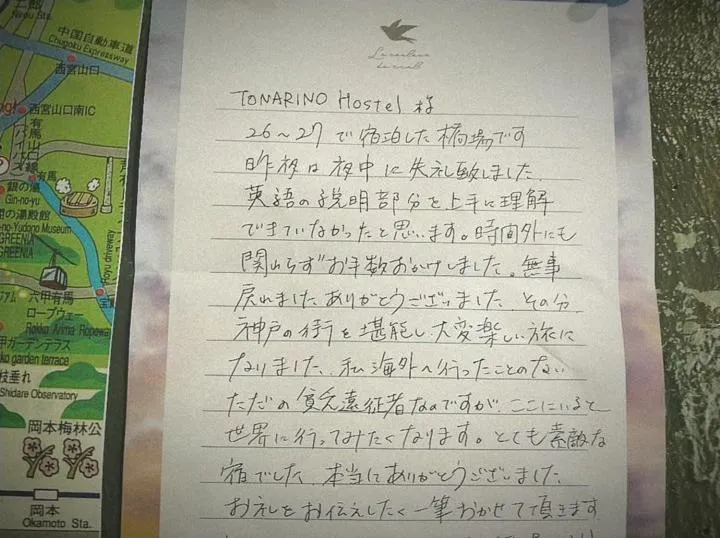 中国自動車道
Chugoku Expressway
西宮山口
西宮山口南IC
有馬
銀の湯
Gin-no-yu
の湯殿館
-no-Yudono Museum
GREENIA
GREENIA
六甲有馬
ロープウェー
Rokko Arima Ropeway
甲ガーデンテラス
ko garden terrace
枝垂れ
Shidare Observatory
岡本梅林公
岡本
Okamoto Sta.
TONARINO Hostel 様
26〜27で宿泊した橋場です
昨夜は夜中に失礼致しました.
英語の説明部分を上手に理解
できていなかったと思います。時間外にも
関わらずお手数おかけしました。無事
戻れましたありがとうございました. その分.
神戸の街を堪能し大変楽しい旅に
なりました. 私海外へ行ったことのない
ただの貧乏遠征者なのですが、ここにいると
世界に行ってみたくなります。とても素敵な
宿でした. 本当にありがとうございました
お礼をお伝えしたく一筆おかせて頂きます